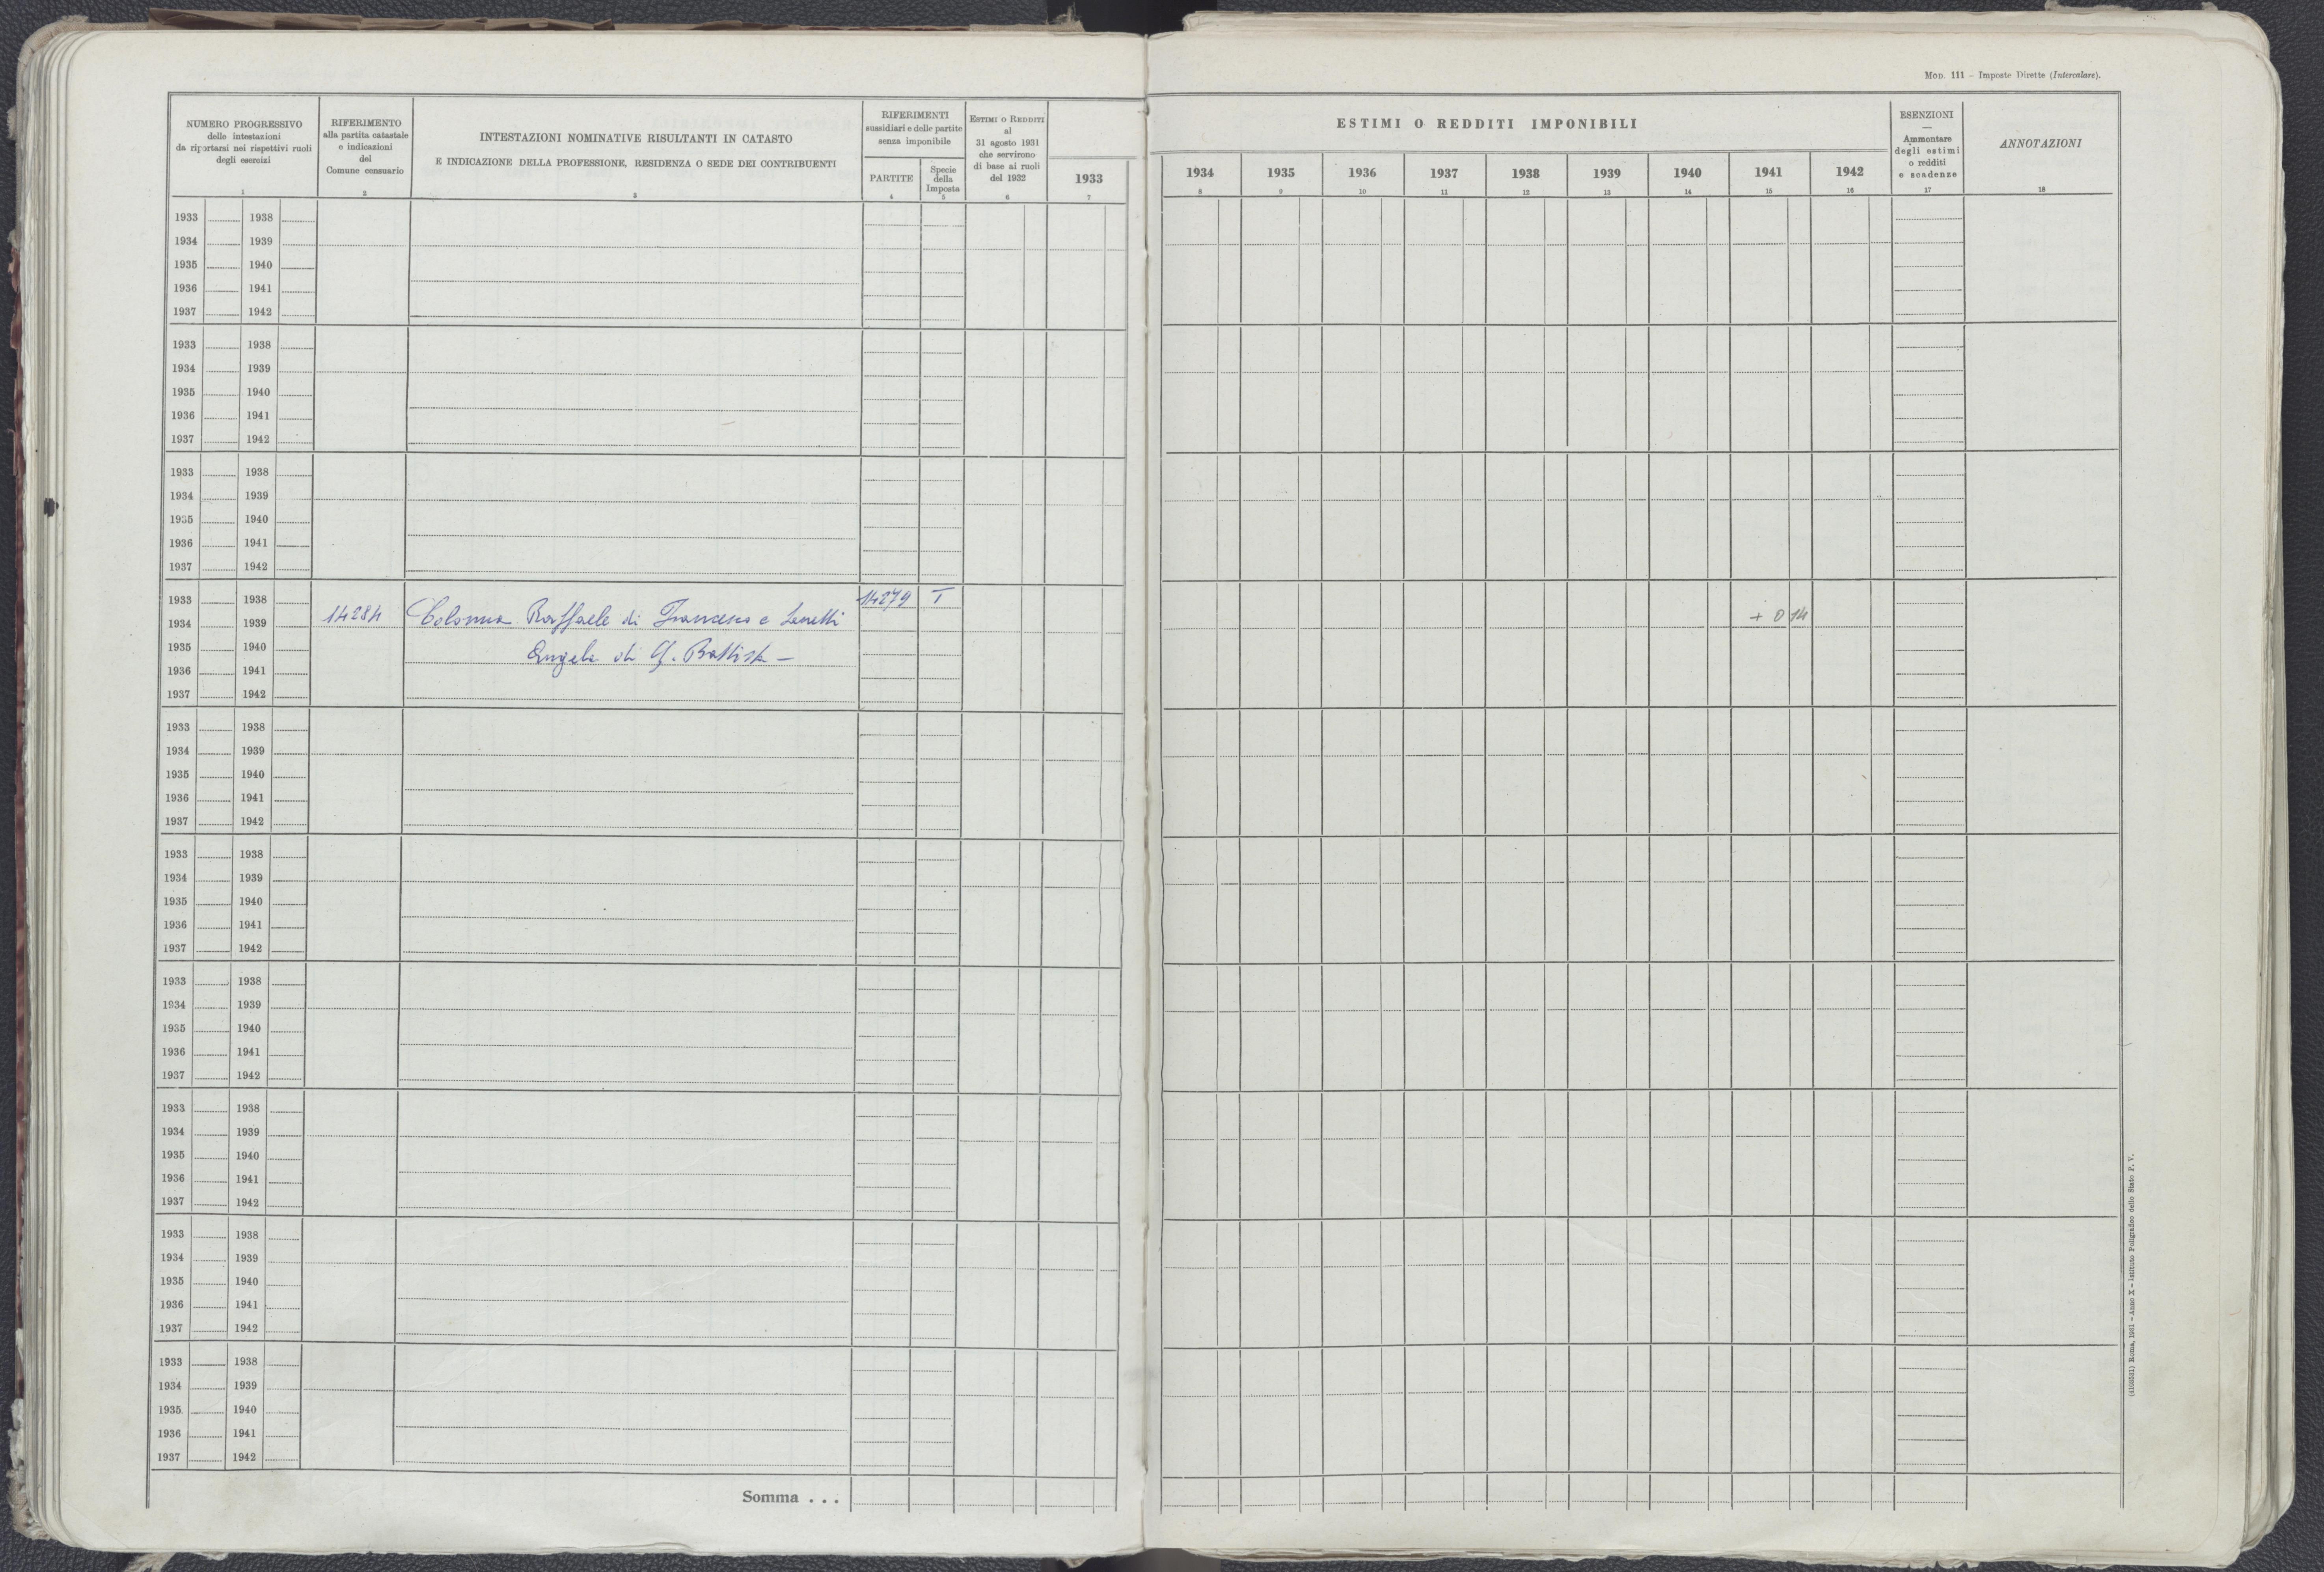 Mod. 111 – Imposte Dirette (Intercalare).
NUMERO PROGRESSIVO
delle intestazioni
da riportarsi nei rispettivi ruoli
degli esercizi
1
RIFERIMENTO
alla partita catastale
e indicazioni
del
Comune censuario
2
INTESTAZIONI NOMINATIVE RISULTANTI IN CATASTO
E INDICAZIONE DELLA PROFESSIONE, RESIDENZA O SEDE DEI CONTRIBUENTI
3
RIFERIMENTI
sussidiari e delle partite
senza imponibile
PARTITE
4
Specie
della
Imposta
5
Estimi o Redditi
al
31 agosto 1931
che servirono
di base ai ruoli
del 1932
6
1933
7
ESTIMI O REDDITI IMPONIBILI
1934 1935 1936 1937 1938 1939 1940 1941 1942
8 9 10 11 12 13 14 15 16
ESENZIONI
—
Ammontare
degli estimi
o redditi
e scadenze
17
ANNOTAZIONI
18
1933 1938
1934 1939
1935 1940
1936 1941
1937 1942
1933 1938
1934 1939
1935 1940
1936 1941
1937 1942
1933 1938
1934 1939
1935 1940
1936 1941
1937 1942
1933 1938 14279 T
1934 1939 14284 Colonna Raffaele di Francesco e + 0 14
1935 1940 Angela di G. Battista –
1936 1941
1937 1942
1933 1938
1934 1939
1935 1940
1936 1941
1937 1942
1933 1938
1934 1939
1935 1940
1936 1941
1937 1942
1933 1938
1934 1939
1935 1940
1936 1941
1937 1942
1933 1938
1934 1939
1935 1940
1936 1941
1937 1942
1933 1938
1934 1939
1935 1940
1936 1941
1937 1942
1933 1938
1934 1939
1935 1940
1936 1941
1937 1942
Somma . . .
Roma, 1931 – Anno X – Istituto Poligrafico dello Stato P. V.